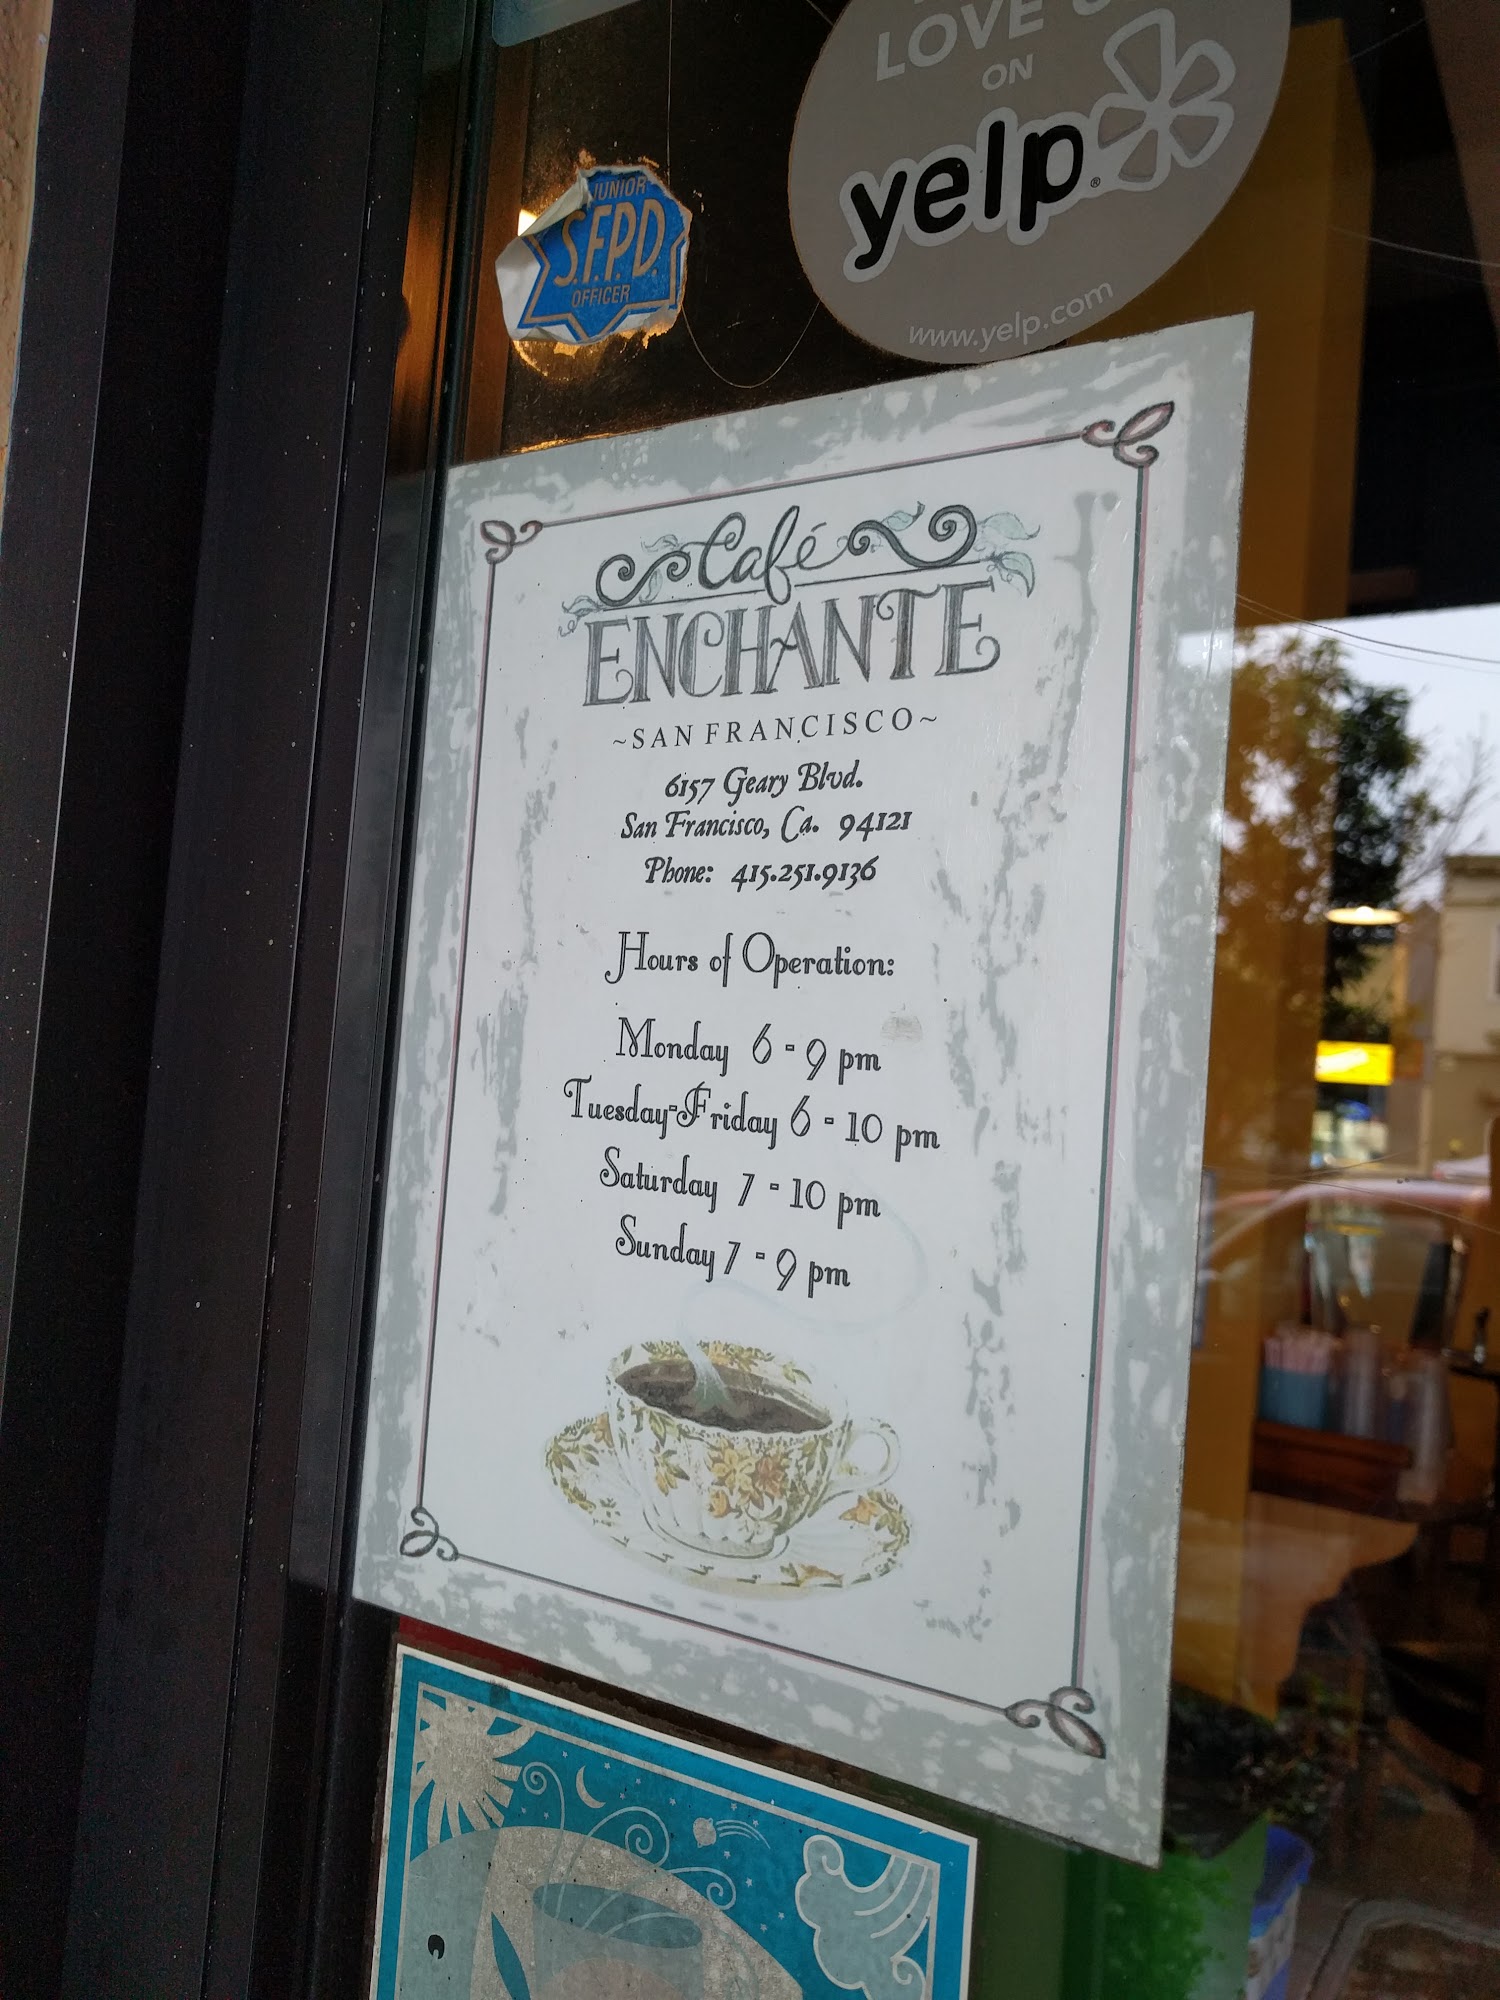 LOVE
ON
yelp®
www.yelp.com
JUNIOR
S.F.P.D.
OFFICER
Café
ENCHANTE
~SAN FRANCISCO~
6157 Geary Blvd.
San Francisco, Ca. 94121
Phone: 415.251.9136
Hours of Operation:
Monday 6 - 9 pm
Tuesday-Friday 6 - 10 pm
Saturday 7 - 10 pm
Sunday 7 - 9 pm